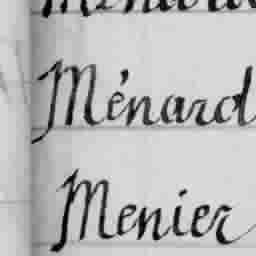 Ménard
Menier